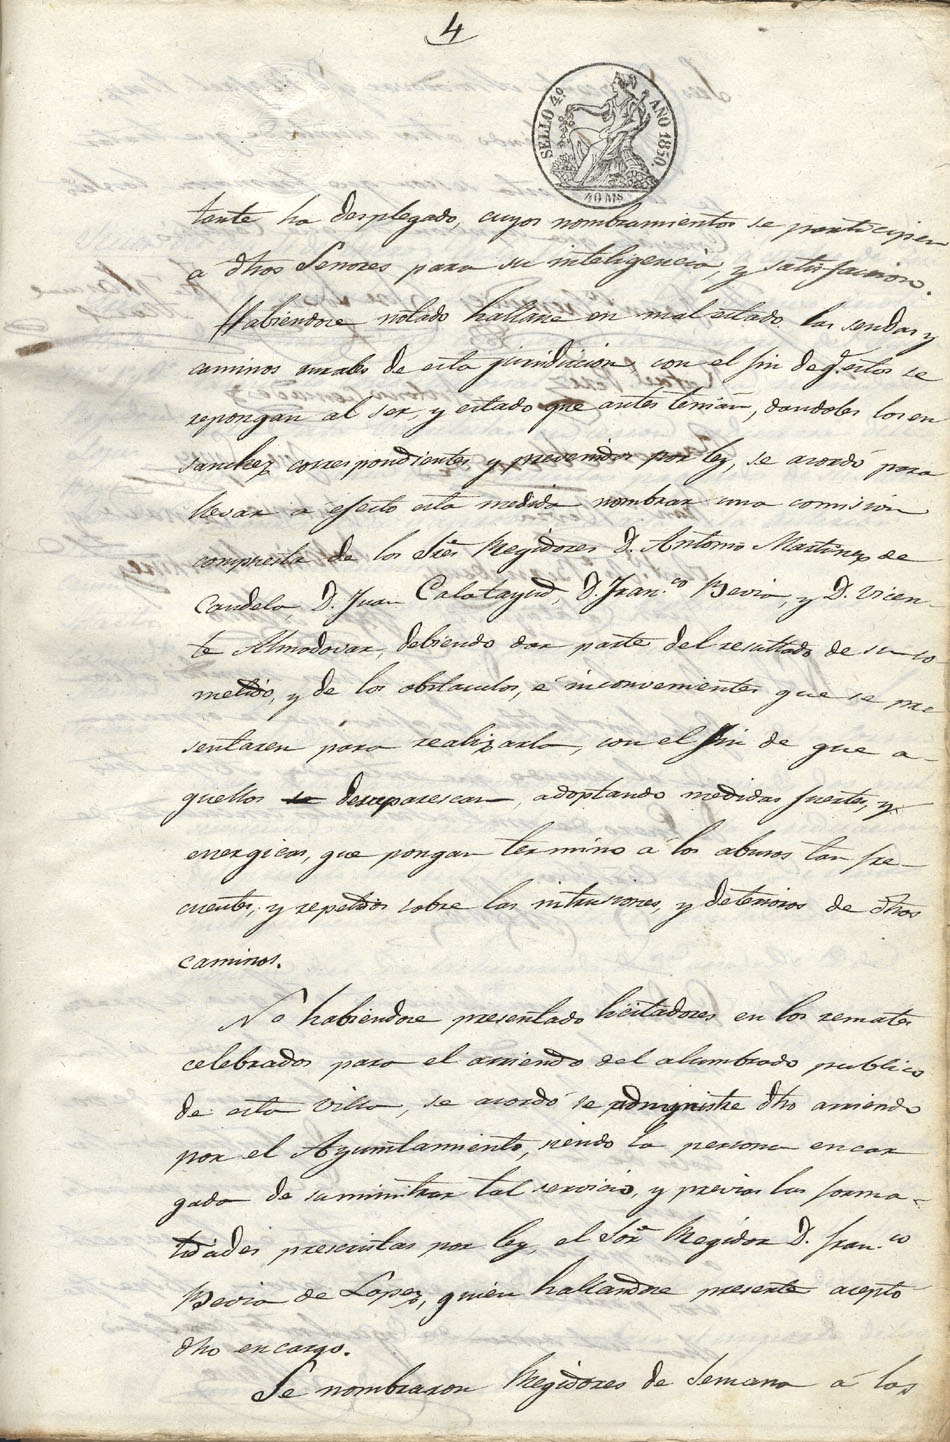 4
SELLO 4º AÑO 1850.
40 Ms
tante ha desplegado, cuyos nombramientos se participen
a dhos Señores para su inteligencia, y satisfaccion.
Habiendose notado hallarse en mal estado las sendas y
caminos rurales de esta juridicion, con el fin de q.e estos se
repongan al ser, y estado que antes tenian, dandoles los en
sanchez correspondientes, y prevenidos por ley, se acordó para
llevar a efecto esta medida nombrar una comision
compuesta de los Sres Regidores D. Antonio Martinez de
Candela, D. Juan Calatayud, D. Fran.co Bevia, y D. Vicen-
te Almodovar, debiendo dar parte del resultado de su co
metido, y de los obstaculos, é inconvenientes que se pre
sentaren para realizarla, con el fin de que a-
quellos se desaparescan, adoptando medidas fuertes, y
energicas, que pongan termino á los abusos tan fre-
cuentes, y repetidos sobre las intrusiones, y deterioros de dhos
caminos.
No habiendose presentado licitadores en los remates
celebrados para el arriendo del alumbrado publico
de esta Villa, se acordó se administre dho arriendo
por el Ayuntamiento, siendo la persona encar
gada de suministrar tal servicio, y previas las forma-
lidades prescritas por ley, el Sor Regidor D. Fran.co
Bevia de Lopez, quien hallandose presente aceptó
dho encargo.
Se nombraron Regidores de Semana á los